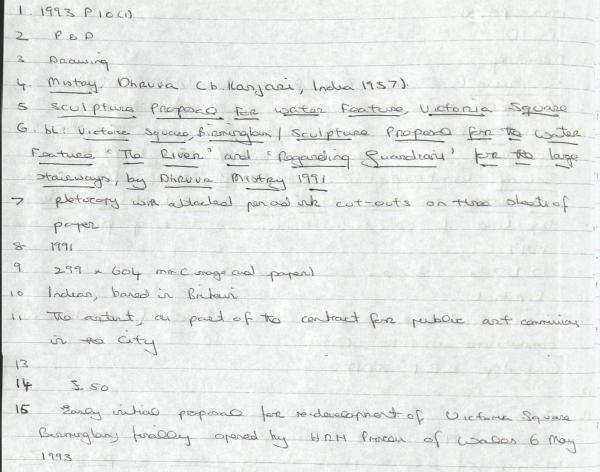 1. 1993 P 10(1)
2 P & D
3 Drawing
4. Mistry, Dhruva (b. Kanjari, India 1957).
5 Sculpture Proposal for Water Feature, Victoria Square
6. bl: Victoria Square, Birmingham / Sculpture Proposal for the Water
Feature 'The River' and 'Regarding Guardians' for the large
stairways, by Dhruva Mistry 1991
7 photocopy with attached pen and ink cut-outs on three sheets of
paper
8 1991
9 299 x 604 mm (image and paper)
10 Indian, based in Britain
11 The artist, as part of the contract for public art commission
in the City
13
14 £50
15 Early initial proposal for re-development of Victoria Square
Birmingham, finally opened by HRH Princess of Wales 6 May
1993